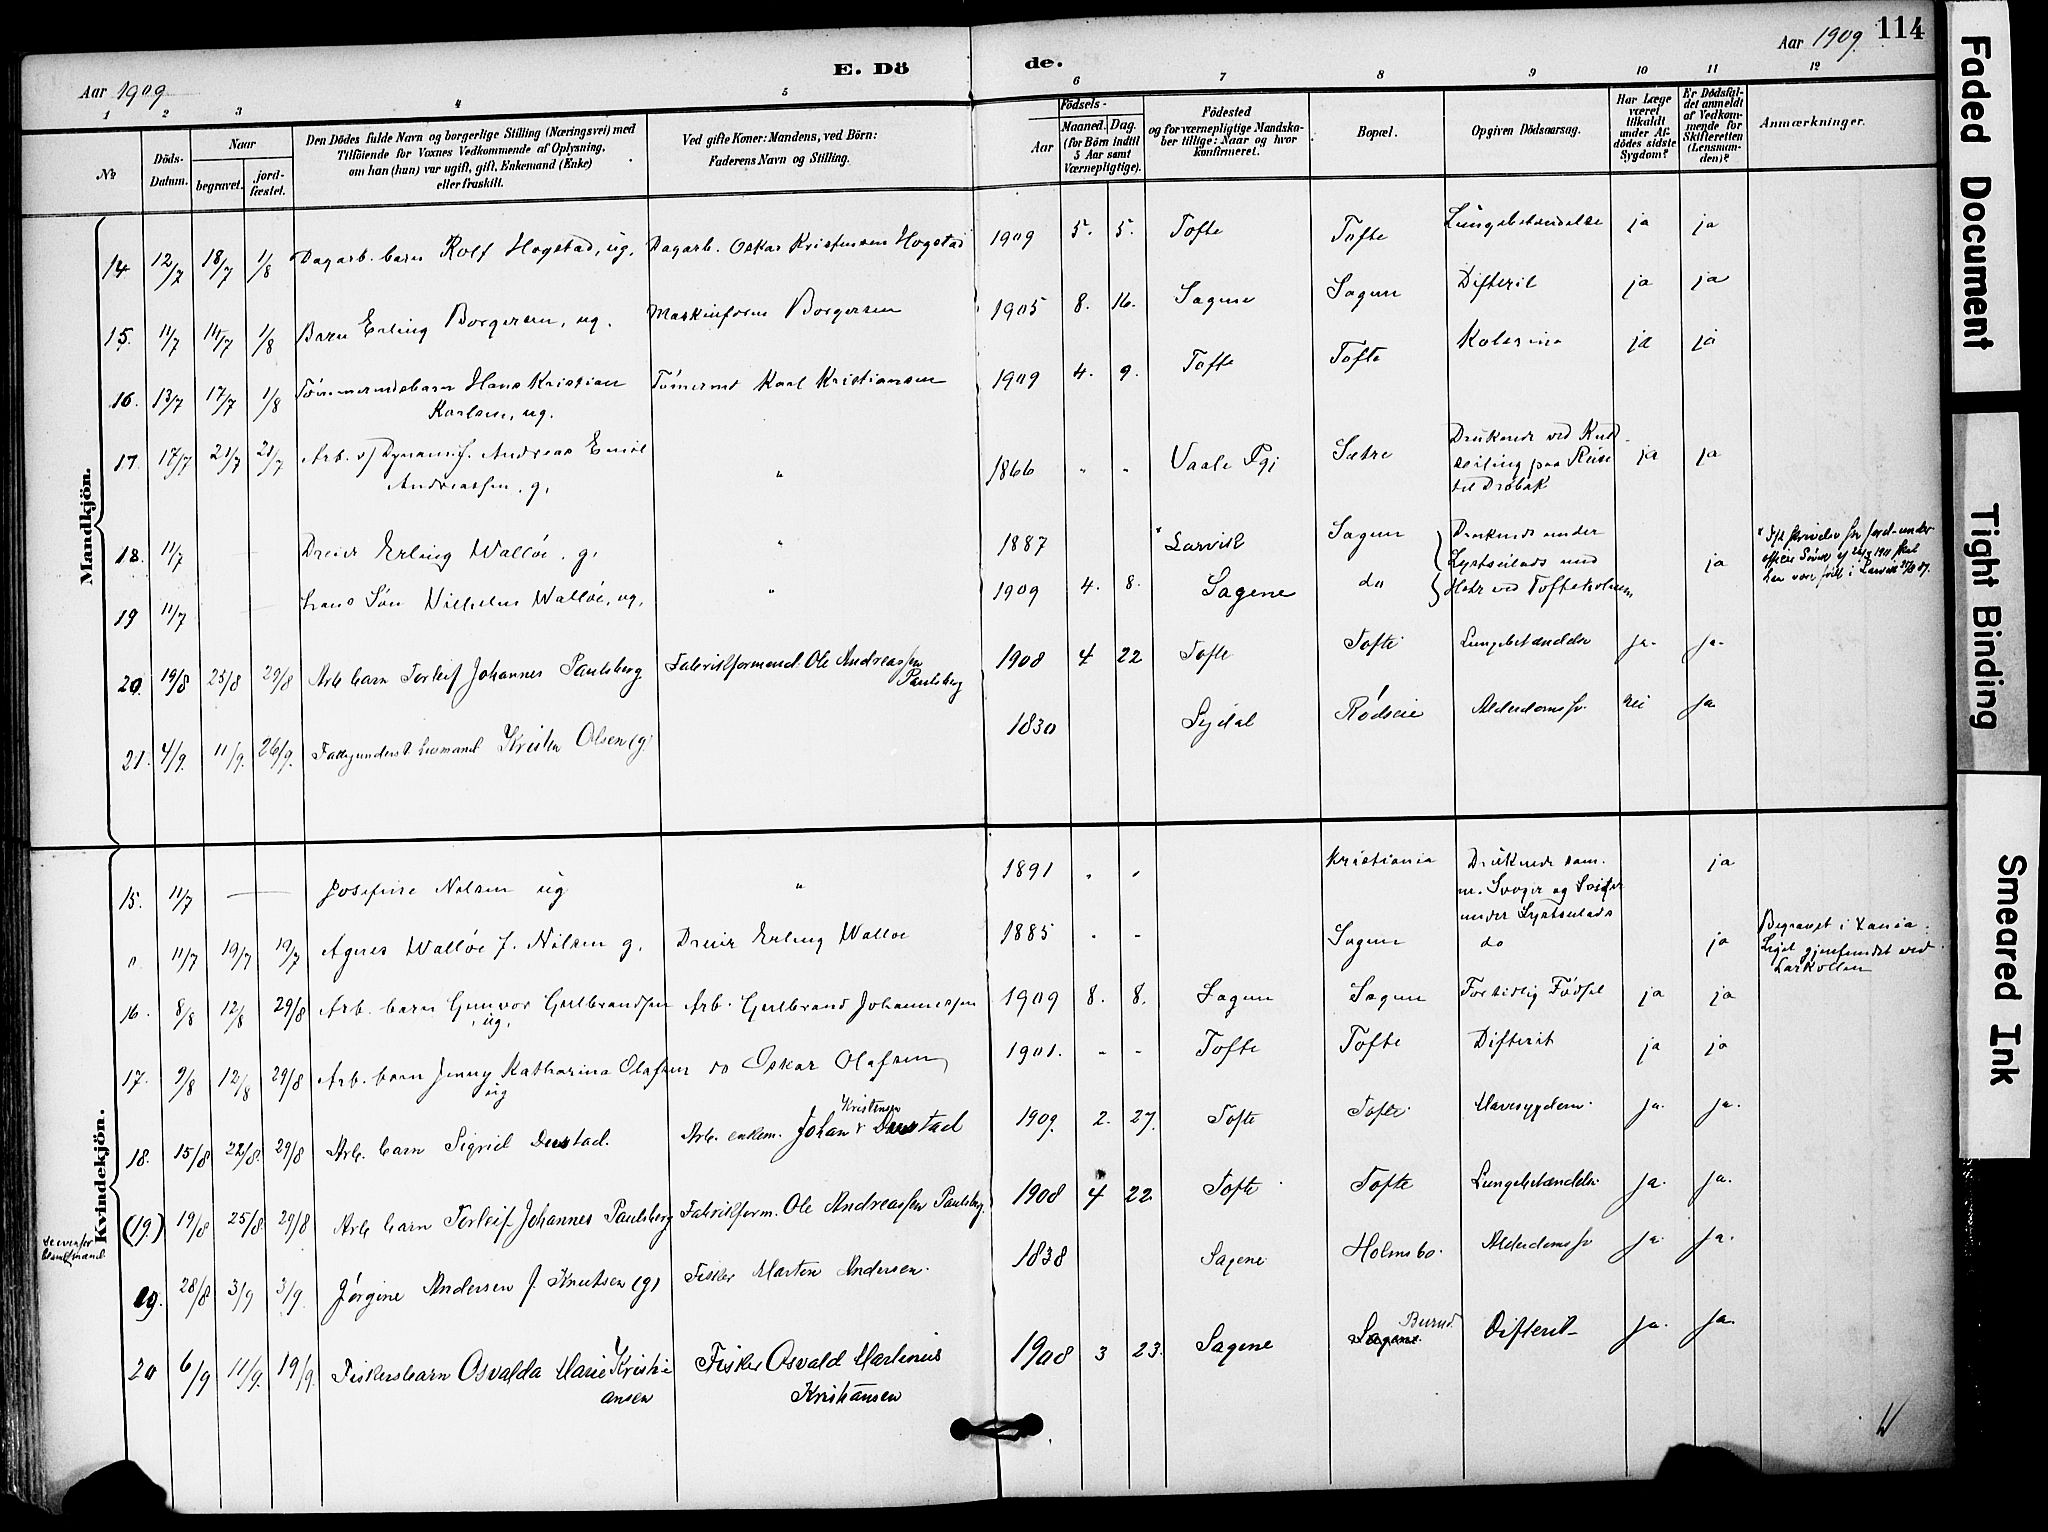 114
Aar 1909
E. Dö
de.
Aar 1909
1 2 3 4 5 6 7 8 9 10 11 12
No
Döds-
Datum.
Naar
begravet.
jord-
fæstet.
Den Dödes fulde Navn og borgerlige Stilling (Næringsvei) med
Tilföiende for Voxnes Vedkommende af Oplysning,
om han (hun) var ugift, gift, Enkemand (Enke)
eller fraskilt.
Ved gifte Koner: Mandens, ved Börn:
Faderens Navn og Stilling.
Födsels-
Aar
Maaned. Dag.
(for Börn indtil
5 Aar samt
Værnepligtige).
Födested
og for værnepligtige Mandska-
ber tillige: Naar og hvor
konfirmeret.
Bopæl.
Opgiven Dödsaarsag.
Har Læge
været
tilkaldt
under Af-
dödes sidste
Sygdom?
Er Dödsfal-
det anmeldt
af Vedkom-
mende for
Skifteretten
(Lensman-
den)?
Anmærkninger.
Mandkjön.
14 12/7 18/7 1/8 Dagarb. barn Rolf Hogstad, ug. Dagarb. Oskar Kristensen Hogstad 1909 5. 5. Tofte Tofte Lungebetændelse ja ja
15. 11/7 14/7 1/8 Barn Erling Borgersen, ug. Maskinform Borgersen 1905 8. 16. Sagene Sagene Difterit ja ja
16. 13/7 17/7 1/8 Tömmermdsbarn Hans Kristian Tömermd Karl Kristiansen 1909 4. 9. Tofte Tofte Kolerine ja ja
Karlsen, ug.
17. 17/7 21/7 21/7 Arb. v/ Dynamf. Andreas Emil " 1866 " " Vaale Pgj Sætre Druknede ved Kuld-
seiling paa Reise ja ja
Andreassen. g.
til Drøbak
18. 11/7 — — Dreier Erling Walløe. g. " 1887 Larvik Sagene Druknede under
Lystseilads med ja
19 11/7 — — hans Søn Vilhelm Walløe, ug. " 1909 4. 8. Sagene do
ved Tofteholmen
20. 19/8 25/8 29/8 Arb. barn Torleif Johannes Paulsberg Fabrikformend. Ole Andreassen 1908 4 22 Tofte Tofte Lungebetændelse ja. ja.
Paulsberg
21. 4/9. 11/9. 26/9. Fattigunderst. Kristen Olsen (g. 1830 Rödseie Alderdomssv. nei ja.
Kvindekjön.
15. 11/7 — — Josefine Nilsen ug " 1891 " " Kristiania Druknede sam-
m. Svoger og Søster ja
under Lystseilads
". 11/7 19/7 19/7 Agnes Walløe f. Nilsen g. Dreier Erling Walløe 1885 - - Sagene do ja Begravet i
Liget gjenfundet ved
Larkollen
16. 8/8 12/8 29/8 Arb. barn Gunvor Gulbrandsen Arb. Gulbrand Johannessen 1909 8. 8. Sagene Sagene Fortidlig Födsel ja ja
ug.
17. 9/8 12/8 29/8 Arb. barn Jenny Katharina Olafsen do Oskar Olafsen 1901. - - Tofte Tofte Difterit ja ja
ug
18. 15/8 22/8. 29/8 Arb. barn Sigrid Arb. enkem. Johan Kristensen 1909. 2. 27. Tofte Tofte Mavesygdom. ja. ja.
(19.) 19/8 25/8 29/8 Arb. barn Torleif Johannes Paulsberg Fabrikform. Ole Andreassen Paulsberg. 1908 4 22. Tofte Tofte Lungebetændelse ja. ja.
Se ovenfor
blandt mænd.
19. 28/8 3/9 3/9. Jørgine Andersen f. Knutsen (g) Fisker Morten Andersen. 1838 Sagene Holmsbo. Alderdomssv ja. ja.
20 6/9 11/9. 19/9. Fiskersbarn Osvalda Marie Kristi- Fisker Osvald Martinius 1908 3 23. Sagene Sagene Difterit ja. ja.
ansen Kristiansen
Faded Document
Tight Binding
Smeared Ink